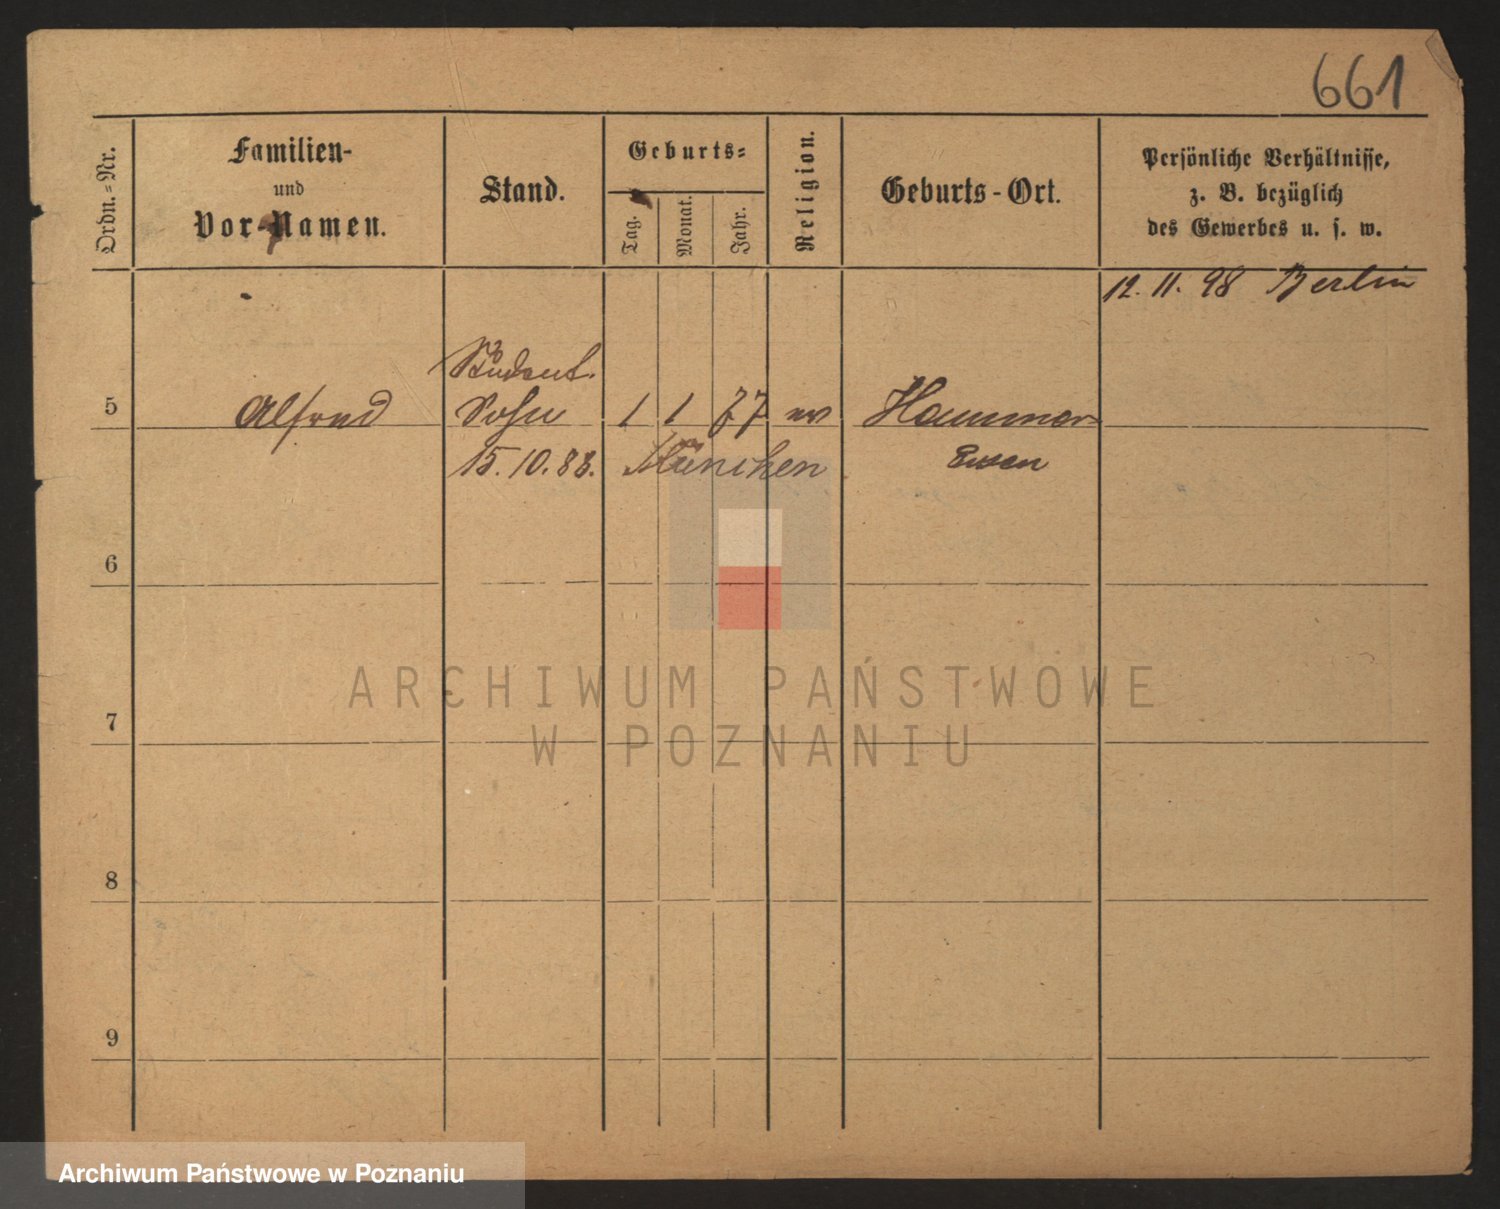 661
Ordn.-Nr.
Familien-
und
Vor-Namen.
Stand.
Geburts-
Tag.
Monat.
Jahr.
Religion.
Geburts-Ort.
Persönliche Verhältnisse,
z. B. bezüglich
des Gewerbes u. s. w.
12. 11. 98 Berlin
Student.
5 Alfred Sohn 1 1 77 ev Hammer-
15. 10. 88. München
6
ARCHIWUM PAŃSTWOWE
7
W POZNANIU
8
9
Archiwum Państwowe w Poznaniu